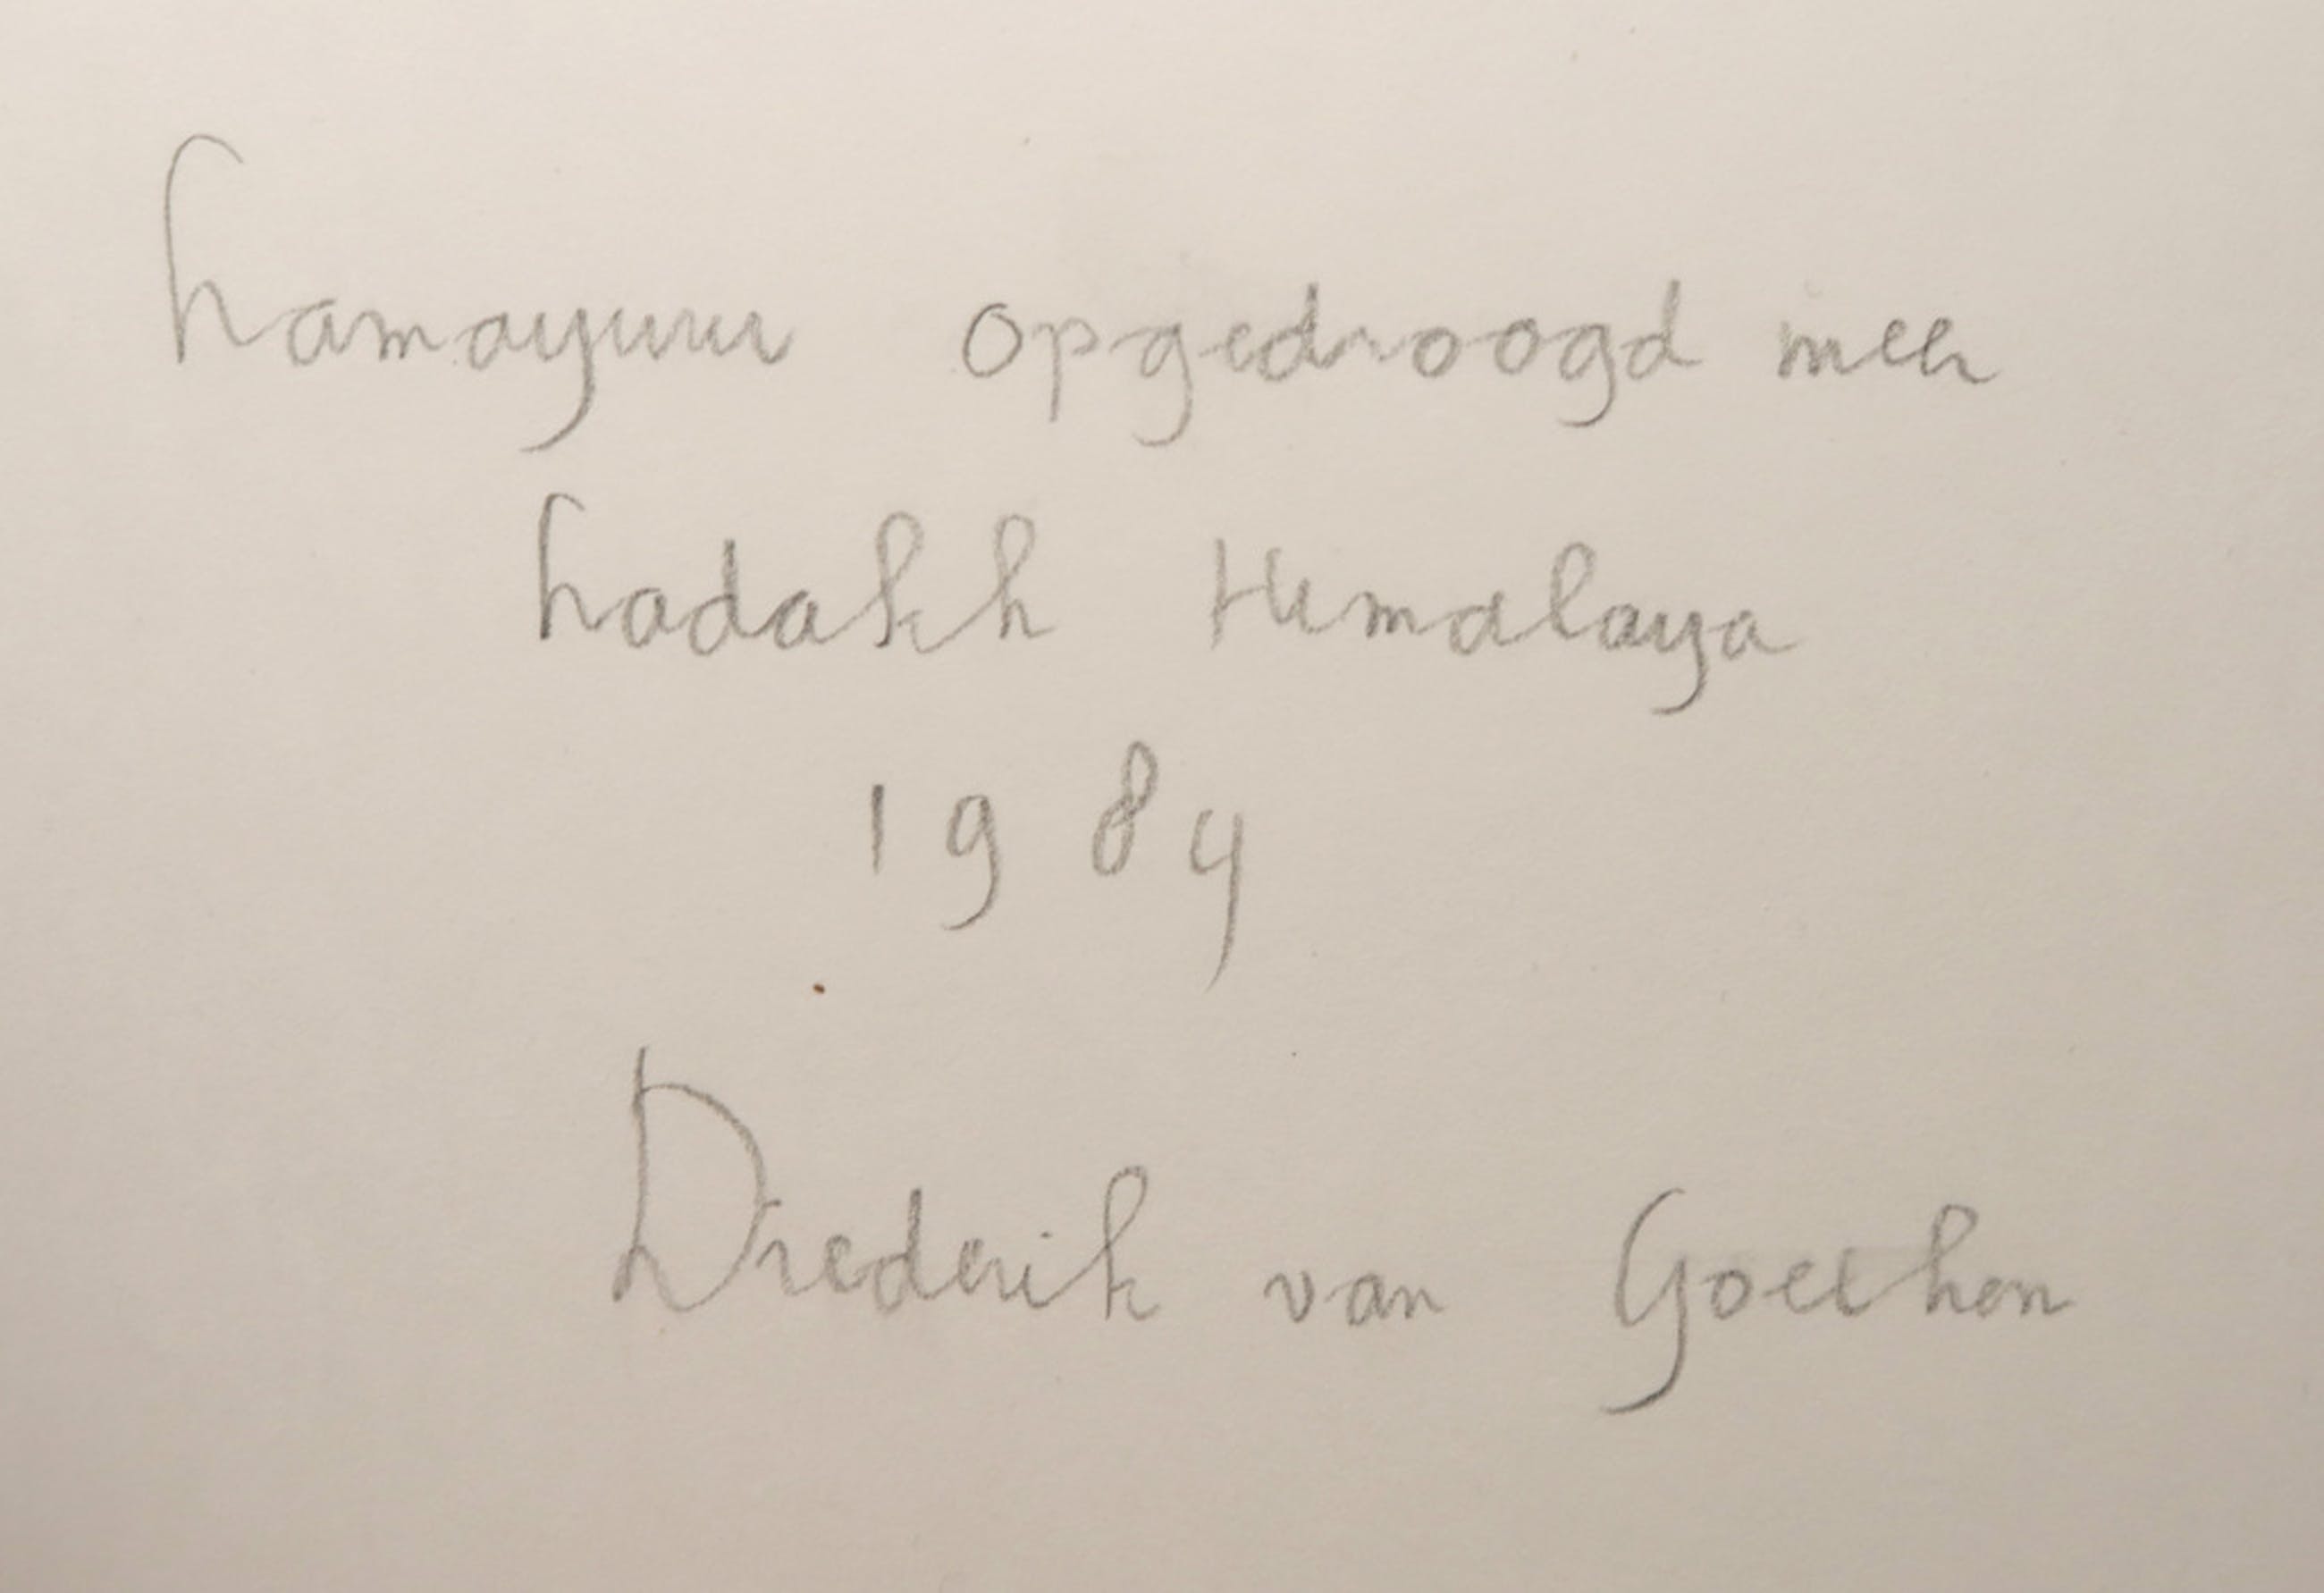 Lamayuru opgedroogd meer
Ladakh Himalaya
1984
Diederik van Goethem